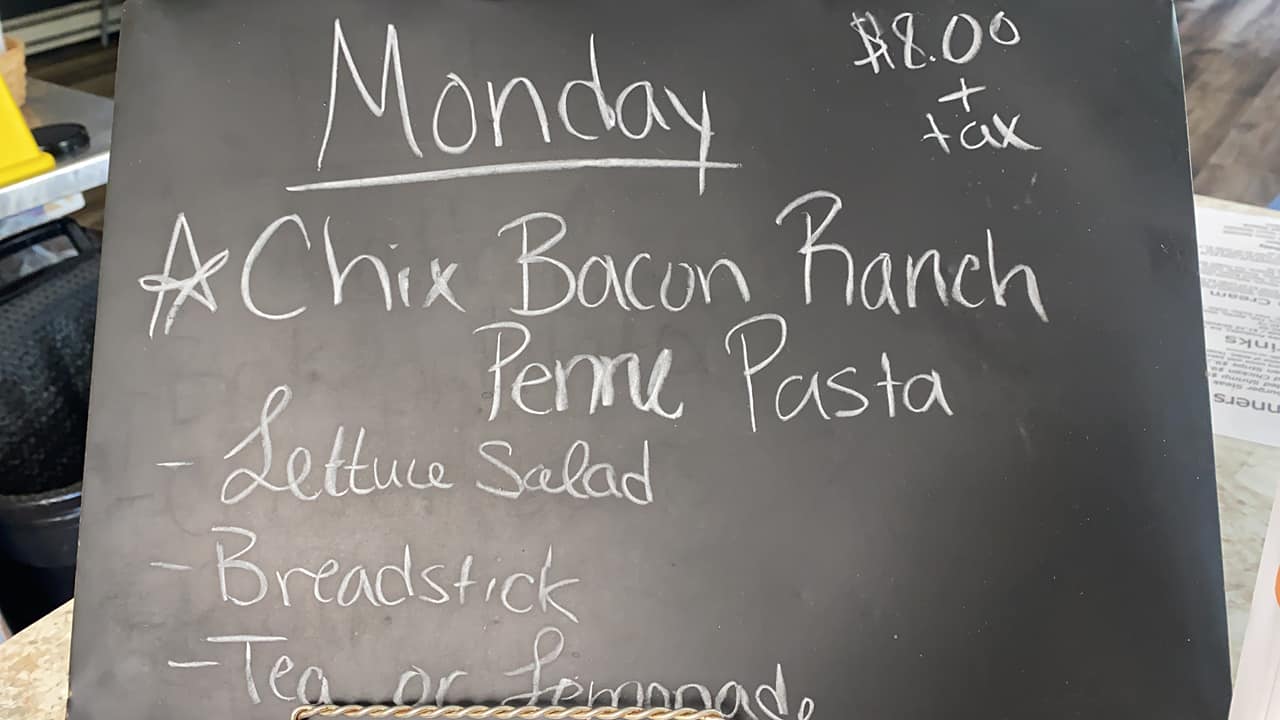 Monday
$8.00
+
tax
☆ Chix Bacon Ranch
Penne Pasta
- Lettuce Salad
- Breadstick
- Tea or Lemonade
Cream